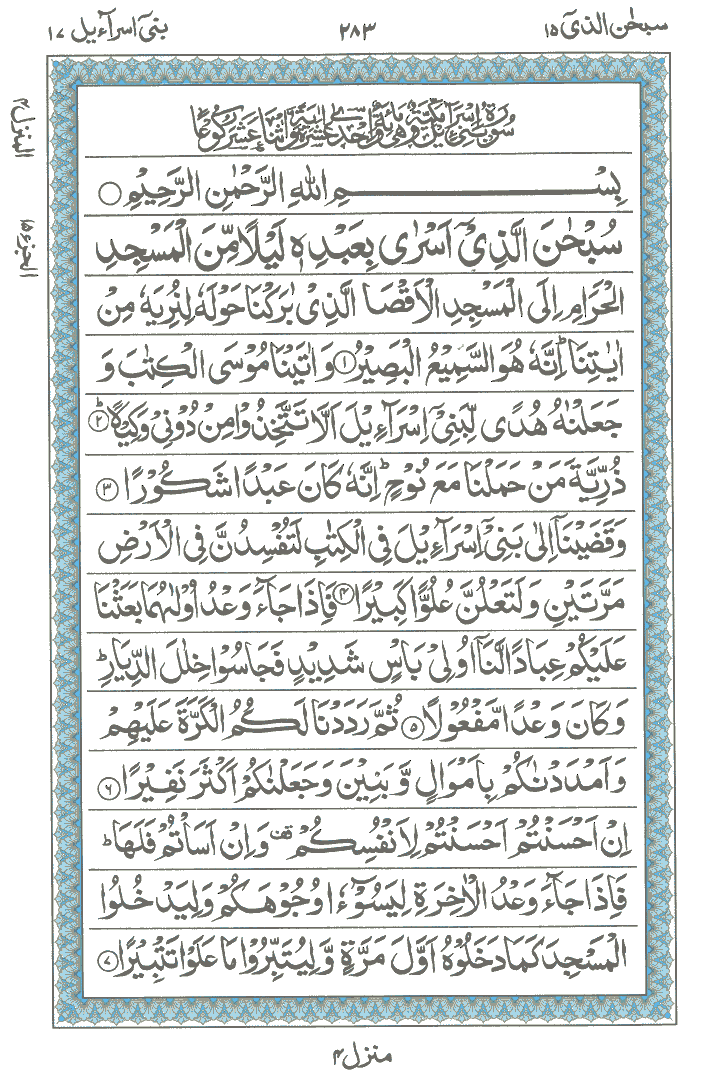 سبحٰن الذیٓ ۱۵
۲۸۳
بنیٓ اسرآءیل ۱۷
المنزل ۴
الجزء ۱۵
سُوْرَةُ بَنِیْٓ اِسْرَآءِیْلَ مَکِّیَّةٌ وَّهِیَ مِائَةٌ وَّاِحْدٰی عَشْرَةَ اٰیَةً وَّاثْنَا عَشَرَ رُکُوْعًا
بِسْمِ اللّٰهِ الرَّحْمٰنِ الرَّحِیْمِ ○
سُبْحٰنَ الَّذِیْٓ اَسْرٰی بِعَبْدِهٖ لَیْلًا مِّنَ الْمَسْجِدِ
الْحَرَامِ اِلَی الْمَسْجِدِ الْاَقْصَا الَّذِیْ بٰرَکْنَا حَوْلَهٗ لِنُرِیَهٗ مِنْ
اٰیٰتِنَا ؕ اِنَّهٗ هُوَ السَّمِیْعُ الْبَصِیْرُ ۱ وَ اٰتَیْنَا مُوْسَی الْکِتٰبَ وَ
جَعَلْنٰهُ هُدًی لِّبَنِیْٓ اِسْرَآءِیْلَ اَلَّا تَتَّخِذُوْا مِنْ دُوْنِیْ وَکِیْلًا ؕ ۲
ذُرِّیَّةَ مَنْ حَمَلْنَا مَعَ نُوْحٍ ؕ اِنَّهٗ کَانَ عَبْدًا شَکُوْرًا ۳
وَ قَضَیْنَآ اِلٰی بَنِیْٓ اِسْرَآءِیْلَ فِی الْکِتٰبِ لَتُفْسِدُنَّ فِی الْاَرْضِ
مَرَّتَیْنِ وَ لَتَعْلُنَّ عُلُوًّا کَبِیْرًا ۴ فَاِذَا جَآءَ وَعْدُ اُوْلٰىهُمَا بَعَثْنَا
عَلَیْکُمْ عِبَادًا لَّنَآ اُولِیْ بَاْسٍ شَدِیْدٍ فَجَاسُوْا خِلٰلَ الدِّیَارِ ؕ
وَ کَانَ وَعْدًا مَّفْعُوْلًا ۵ ثُمَّ رَدَدْنَا لَکُمُ الْکَرَّةَ عَلَیْهِمْ
وَ اَمْدَدْنٰکُمْ بِاَمْوَالٍ وَّ بَنِیْنَ وَ جَعَلْنٰکُمْ اَکْثَرَ نَفِیْرًا ۶
اِنْ اَحْسَنْتُمْ اَحْسَنْتُمْ لِاَنْفُسِکُمْ قف وَ اِنْ اَسَاْتُمْ فَلَهَا ؕ
فَاِذَا جَآءَ وَعْدُ الْاٰخِرَةِ لِیَسُوْٓءٗا وُجُوْهَکُمْ وَ لِیَدْخُلُوا
الْمَسْجِدَ کَمَا دَخَلُوْهُ اَوَّلَ مَرَّةٍ وَّ لِیُتَبِّرُوْا مَا عَلَوْا تَتْبِیْرًا ۷
منزل ۴